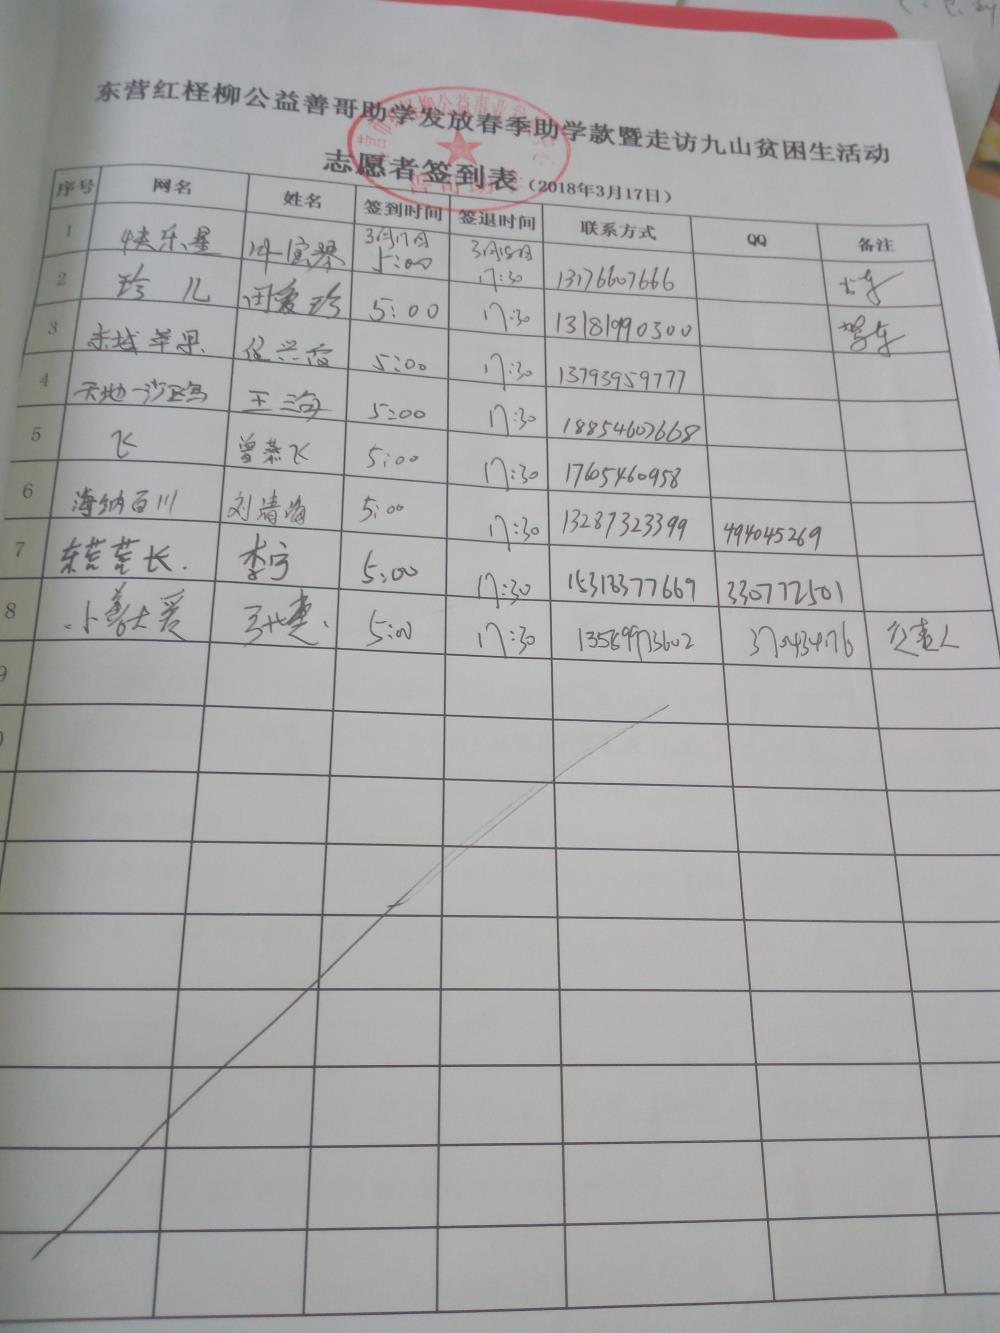 东营红柽柳公益善哥助学发放春季助学款暨走访九山贫困生活动
志愿者签到表（2018年3月17日）
序号 网名 姓名 签到时间 签退时间 联系方式 QQ 备注
1 快乐星 3月17日 5:00 3月18日 17:30 13176607666
2 珍儿 闫爱珍 5:00 17:30 13181990300 驾车
3 赤城苹果 5:00 17:30 13793959777
4 天地一沙鸥 王海 5:00 17:30 18854607668
5 飞 曾燕飞 5:00 17:30 17605460958
6 海纳百川 刘清海 5:00 17:30 13287323399 494045269
7 东营营长 李宁 5:00 17:30 15318377669 330772501
8 小善大爱 5:00 17:30 13569973602 负责人
9